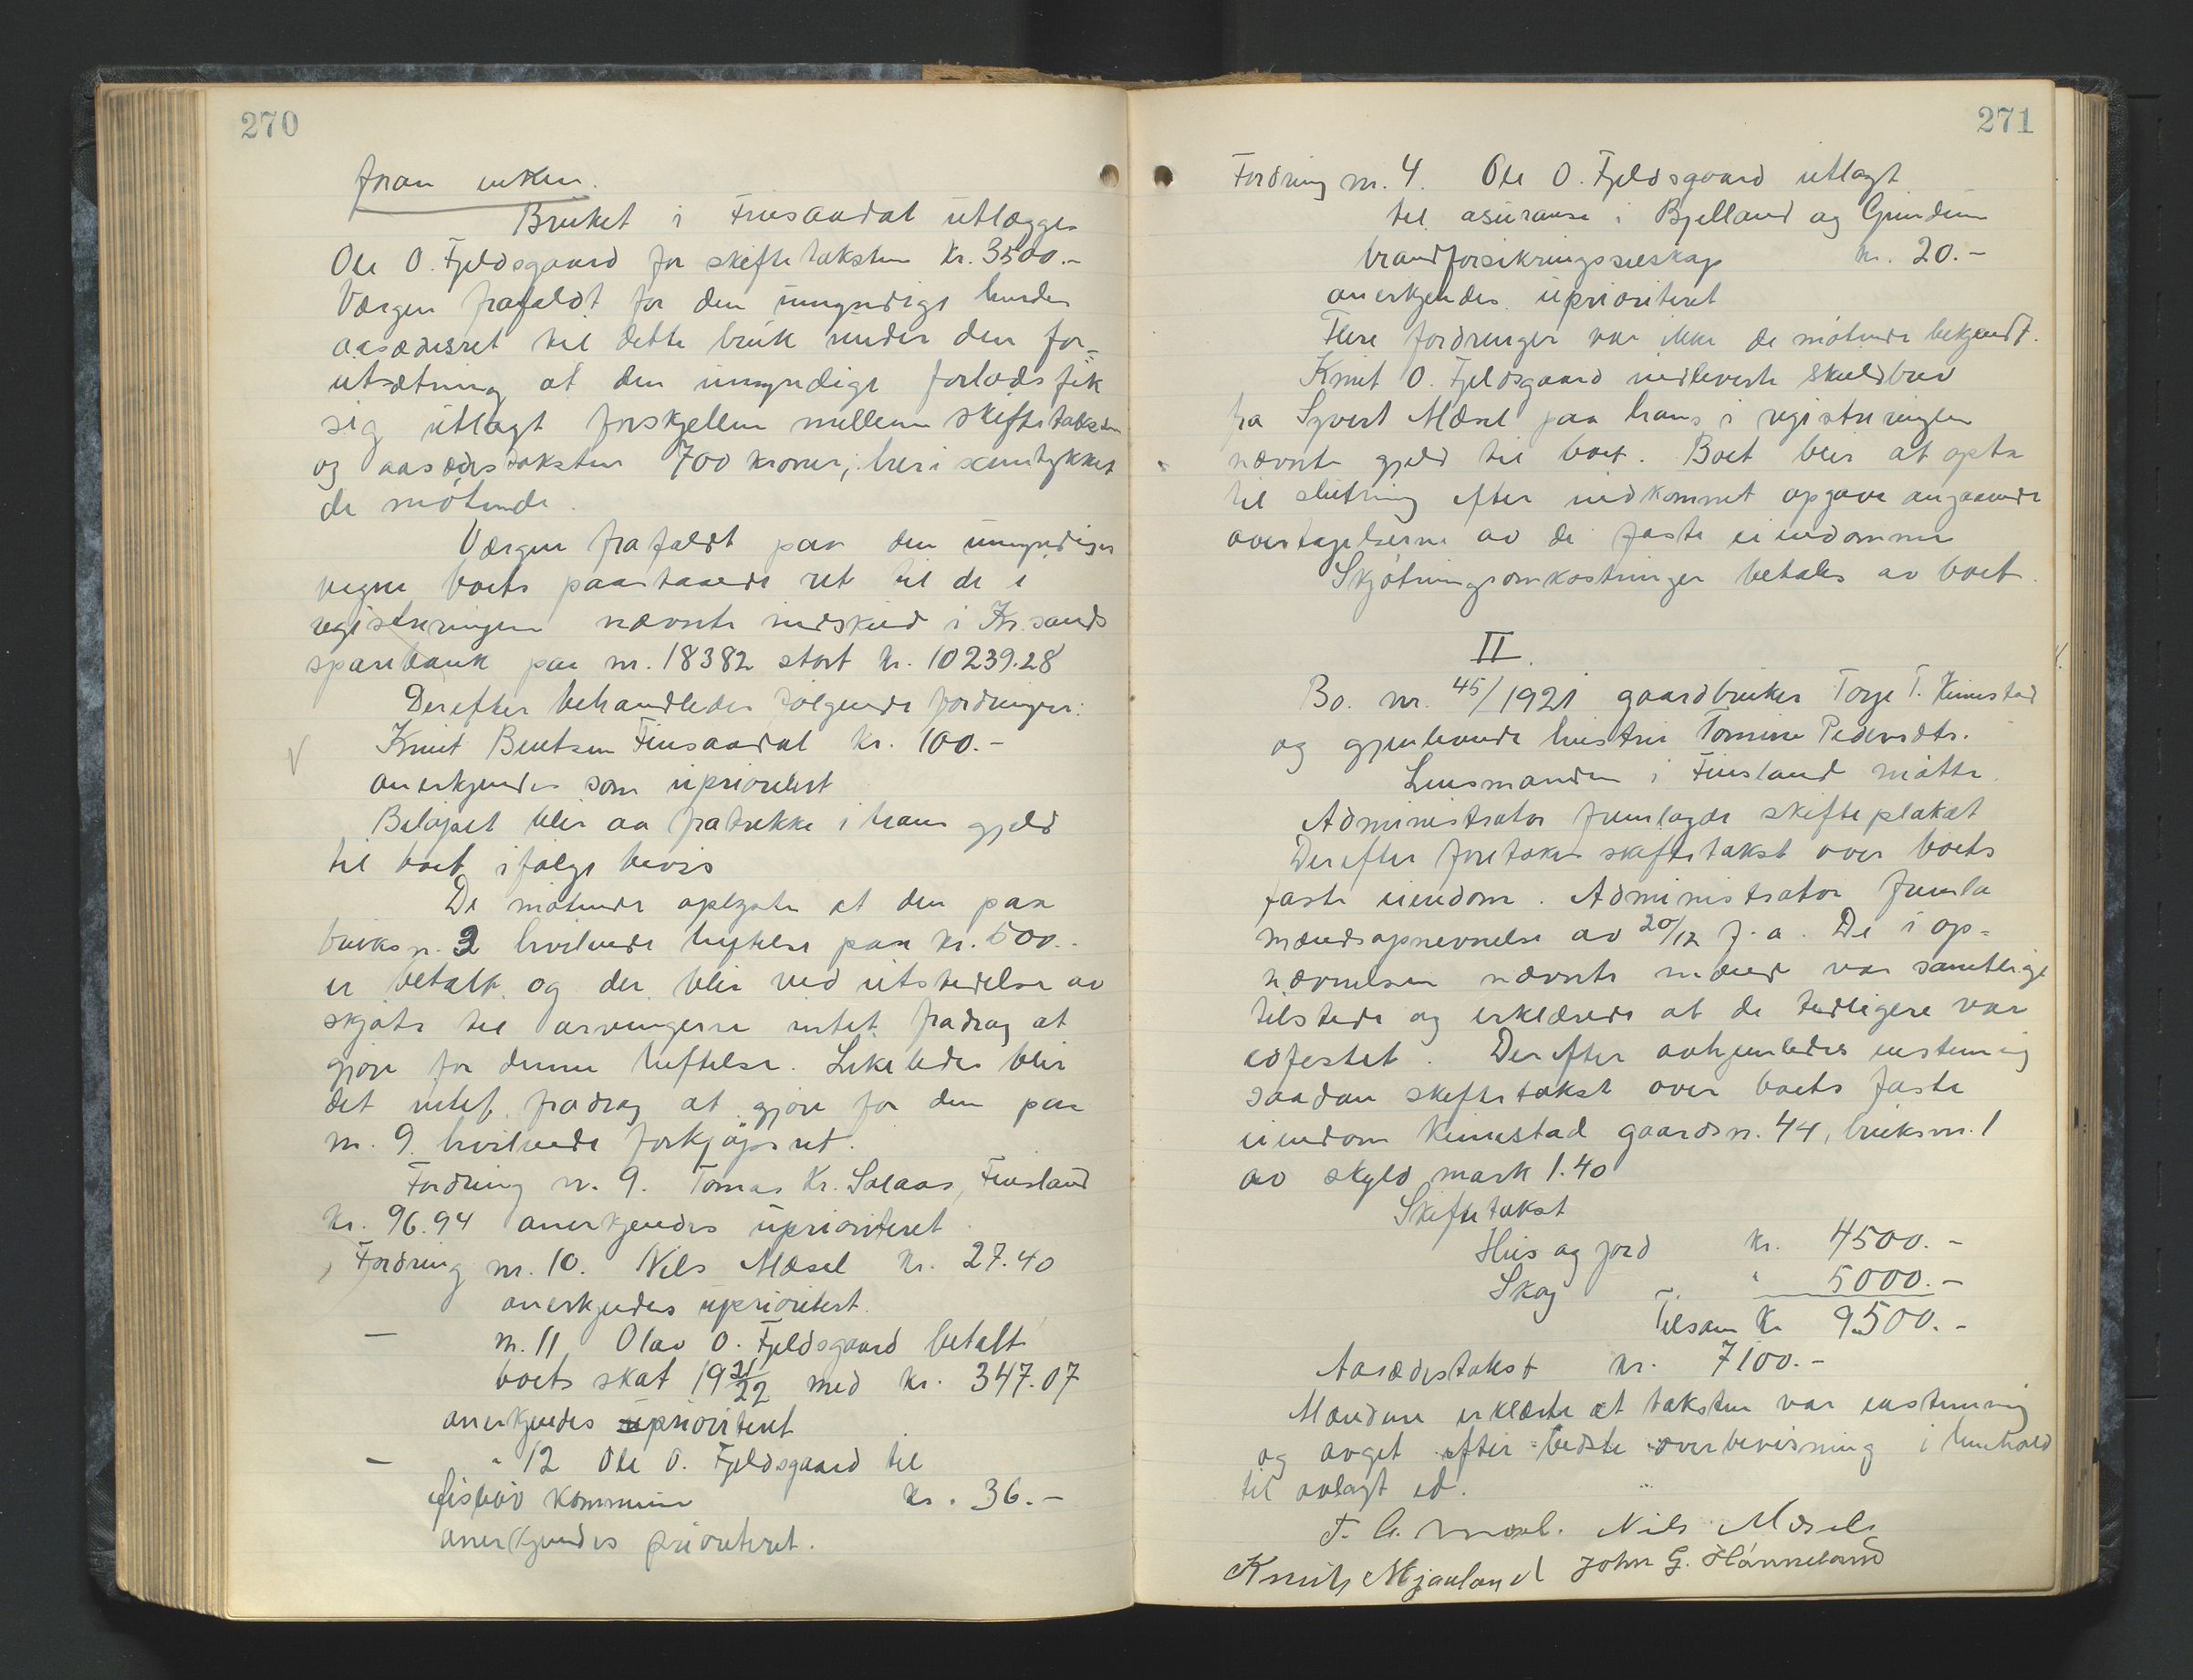 270
foran enken.
Bruket i Finsaadal utlægges
Ole O. Fjeldsgaard for skiftetaksten kr. 3500.-
Værgen frafaldt for den umyndige hendes
aasædesret til dette bruk under den for-
utsætning at den umyndige forlods fik
sig utlagt forskjellen mellem skiftetaksten
og aasædestaksten 700 kroner; heri samtykket
de møtende.
Værgen frafaldt paa den umyndiges
vegne boets paastaaede ret til de i
registreringen nævnte indskud i Kr.sands
sparebank paa nr. 18382 stort kr. 10239.28
Derefter behandledes følgende fordringer:
Knut Bentsen Finsaadal kr. 100.-
anerkjendes som uprioritert
Beløpet blir aa fratrekke i hans gjeld
til boet ifølge bevis
De møtende oplyste at den paa
bruksn. 2 hvilende heftelse paa kr. 500.-
er betalt og der blir ved utstedelse av
skjøte til arvingerne intet fradrag at
gjøre for denne heftelse. Likeledes blir
det intet fradrag at gjøre for den paa
nr. 9 hvilende forkjøpsret.
Fordring nr. 9. Tomas Kr. Solaas, Finsland
kr. 96.94 anerkjendes uprioriteret
Fordring nr. 10. Nils Mæsel kr. 27.40
anerkjendes uprioritert.
— nr. 11 Olav O. Fjeldsgaard betalt
boets skat 19 21/22 med kr. 347.07
anerkjendes prioriteret
— " 12 Ole O. Fjeldsgaard til
kommune kr. 36.-
anerkjendes prioriteret.
271
Fordring nr. 4. Ole O. Fjeldsgaard utlagt
til asuranse i Bjelland og Grindum
brandforsikringsselskap kr. 20.-
anerkjendes uprioriteret
Flere fordringer var ikke de møtende bekjendt.
Knut O. Fjeldsgaard indleverte skuldbrev
fra Syvert Mæsel paa hans i registreringen
nævnte gjeld til boet. Boet blir at opta
til slutning efter indkommet opgave angaaende
overtagelserne av de faste eiendomme
Skjøtningsomkostninger betales av boet.
II.
Bo. nr. 45/1921 gaardbruker Torje T. Kinnestad
og gjenlevende hustru Tomine Pedersdtr.
Lensmanden i Finsland møtte.
Administrator fremlagde skifteplakat
Derefter foretokes skiftetakst over boets
faste eiendom. Administrator fremla
mændsopnevnelse av 20/12 f. a. De i op=
nævnelsen nævnte mænd var samtlige
tilstede og erklærede at de tidligere var
edfestet. Derefter avhjemledes enstemmig
saadan skiftetakst over boets faste
eiendom Kinnestad gaardsn. 44, bruksnr. 1
av skyld mark 1.40
Skiftetakst
Hus og jord kr. 4500.-
Skog " 5000.-
Tilsam kr 9500.-
Aasædestakst kr. 7100.-
Mændene erklærte at taksten var enstemmig
og avget efter bedste overbevisning i henhold
til avlagt ed.
Nils Mæsel
Knut Mjaaland John G. Hønneland